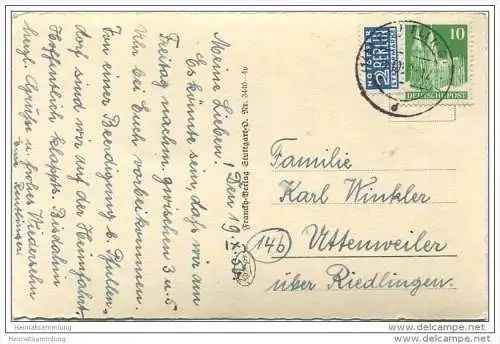 Meine Lieben! Den 19.X.50.
Es könnte sein, daß wir am
Freitag nachm. zwischen 3 u. 5
Uhr bei Euch vorbeikommen.
Von einer Beerdigung b. Pfullen-
dorf sind wir auf der Heimfahrt.
Hoffentlich klappts. Bis dahin
herzl. Grüße u. frohes Wiedersehn
Eure Reutlinger
Franckh-Verlag Stuttgart-O. Nr.
NOTOPFER
2 BERLIN
STEUERMARKE
10
DEUTSCHE POST
Familie
Karl Winkler
(14b) Uttenweiler
über Riedlingen.
Heimatsammlung
www.delcampe.net